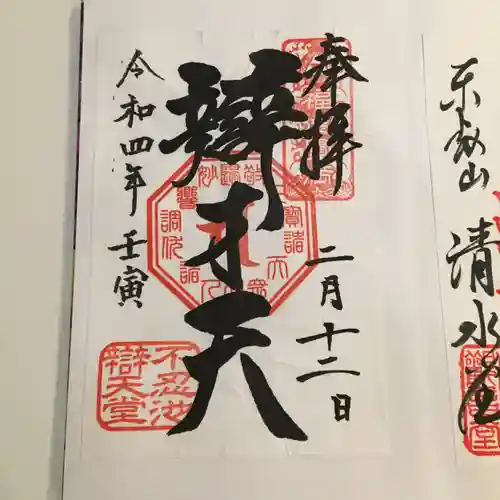 奉拝
二月十二日
辯才天
令和四年 壬寅
不忍池
辯天堂
東叡山
清水堂